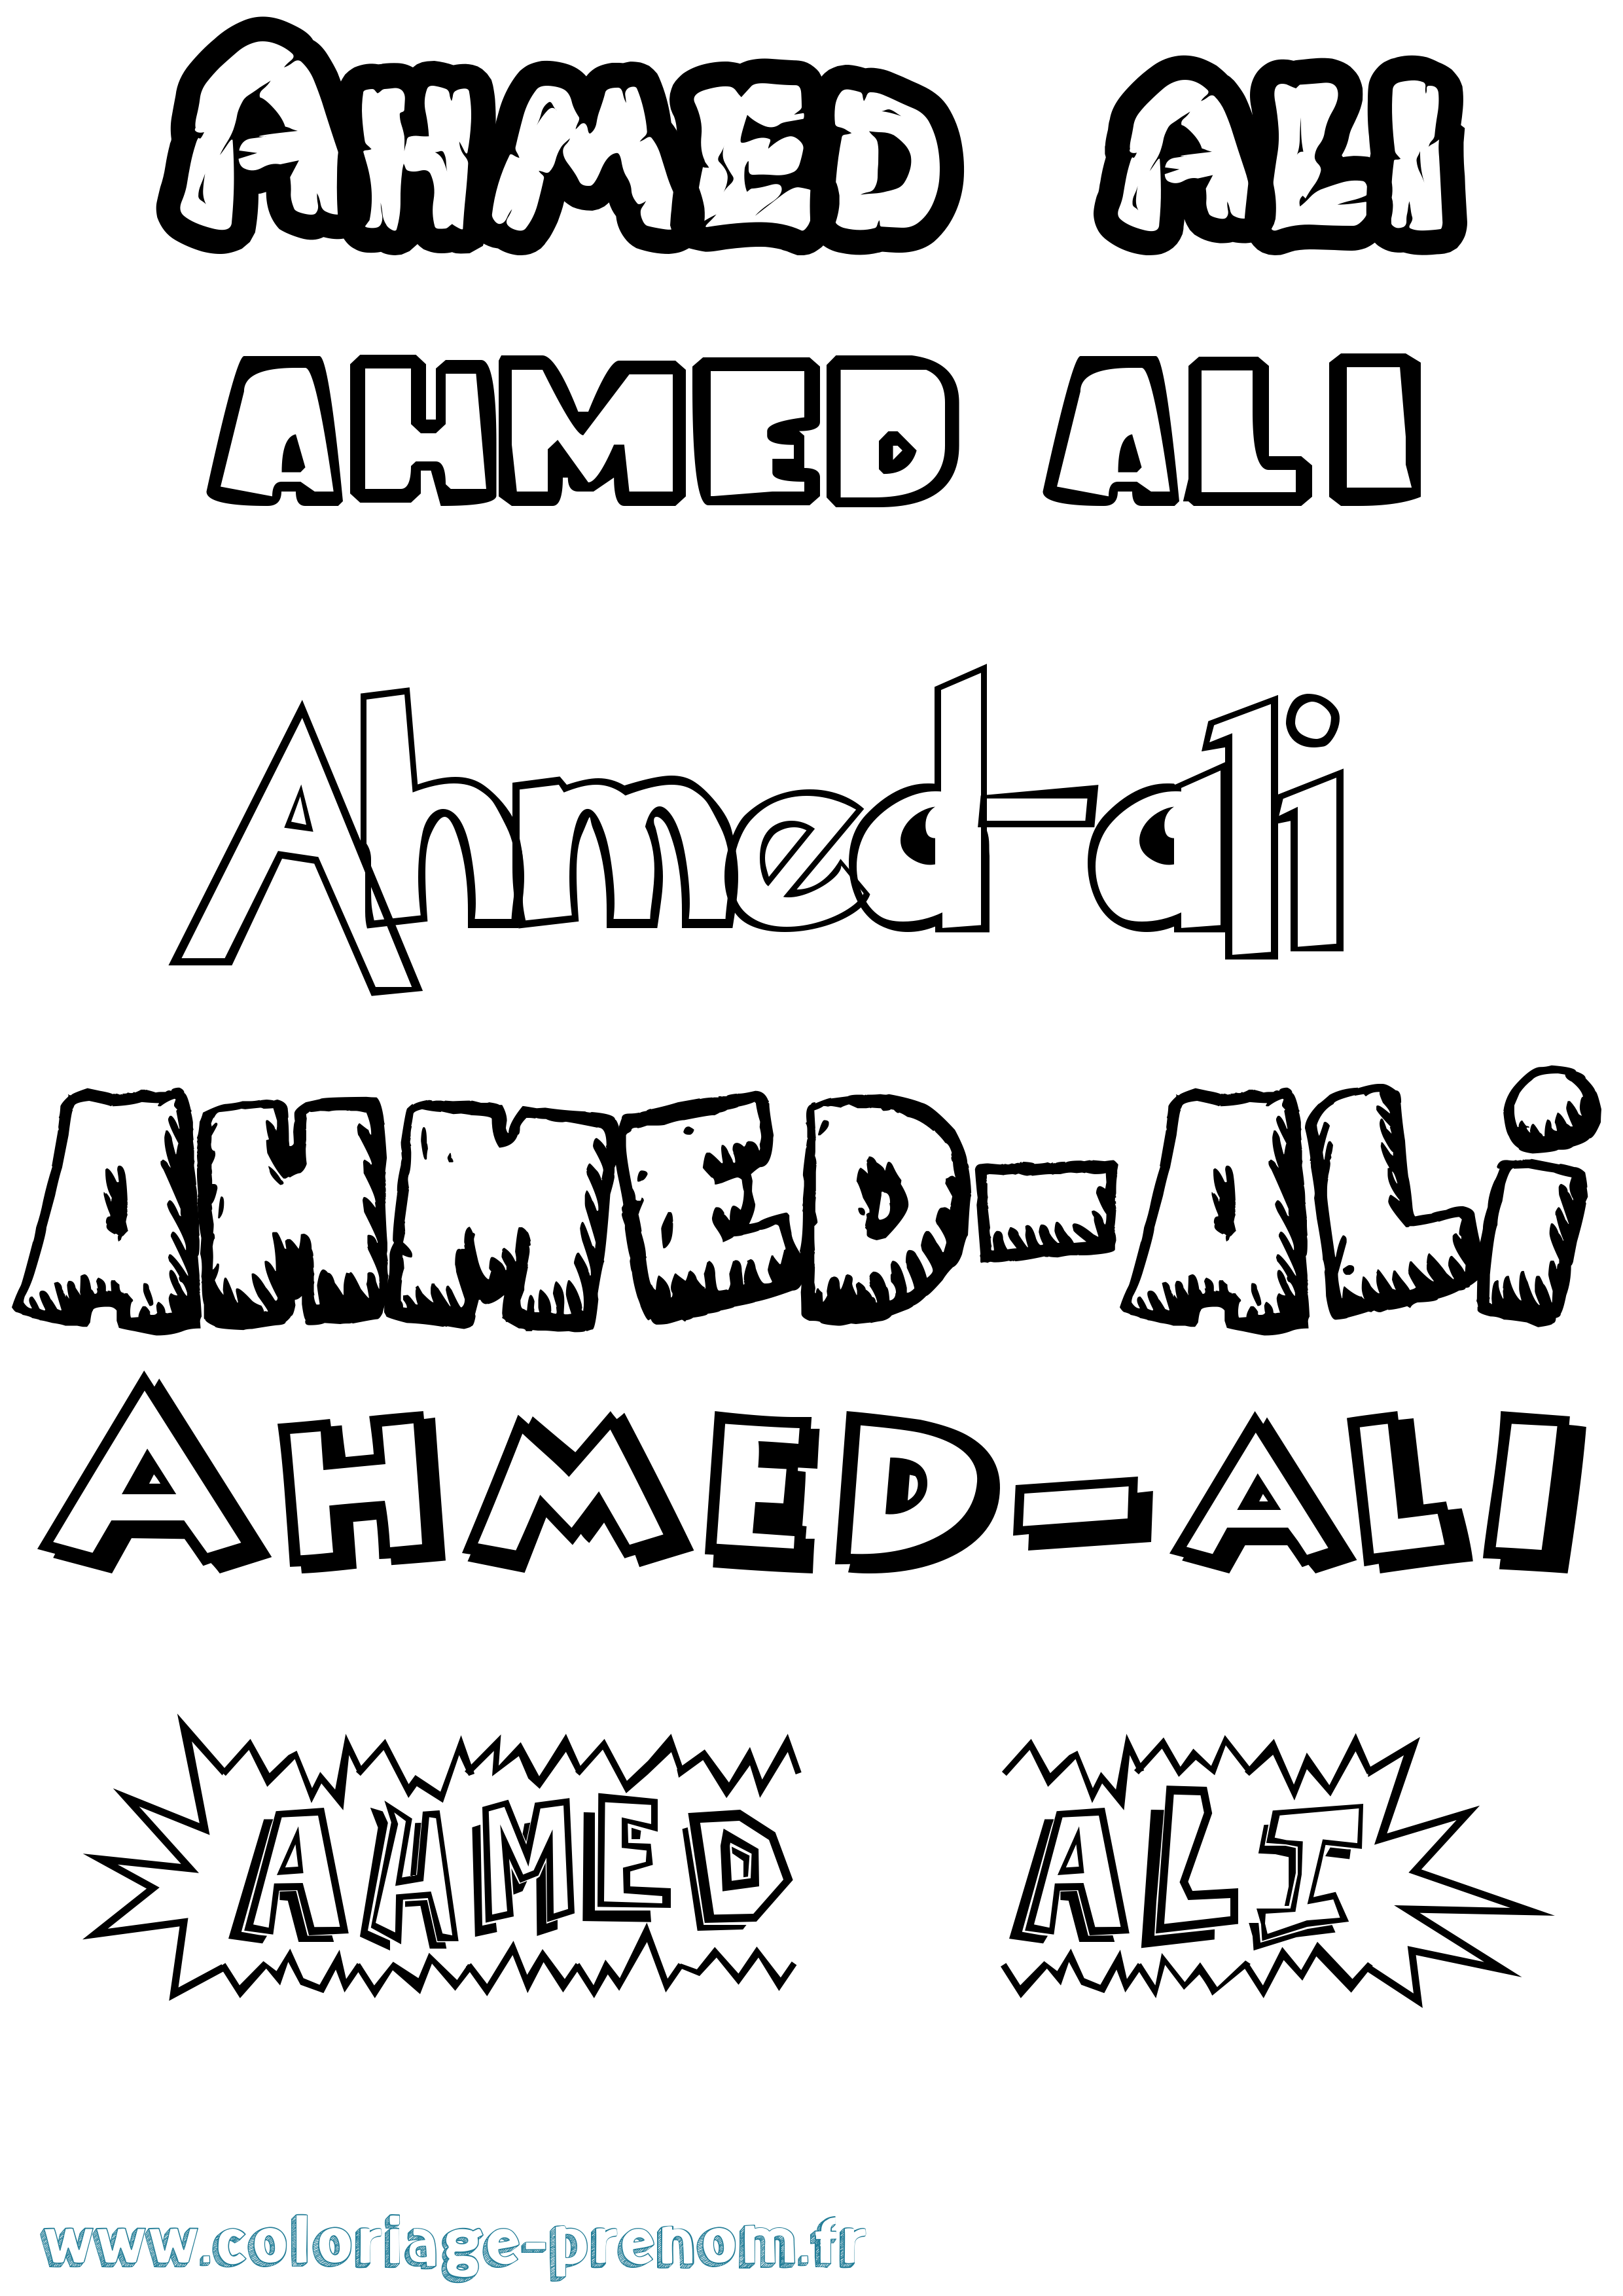 AHMED ALI
AHMED ALI
Ahmed-ali
AHMED-ALi
AHMED-ALI
AHMED ALI
www.coloriage-prenom.fr